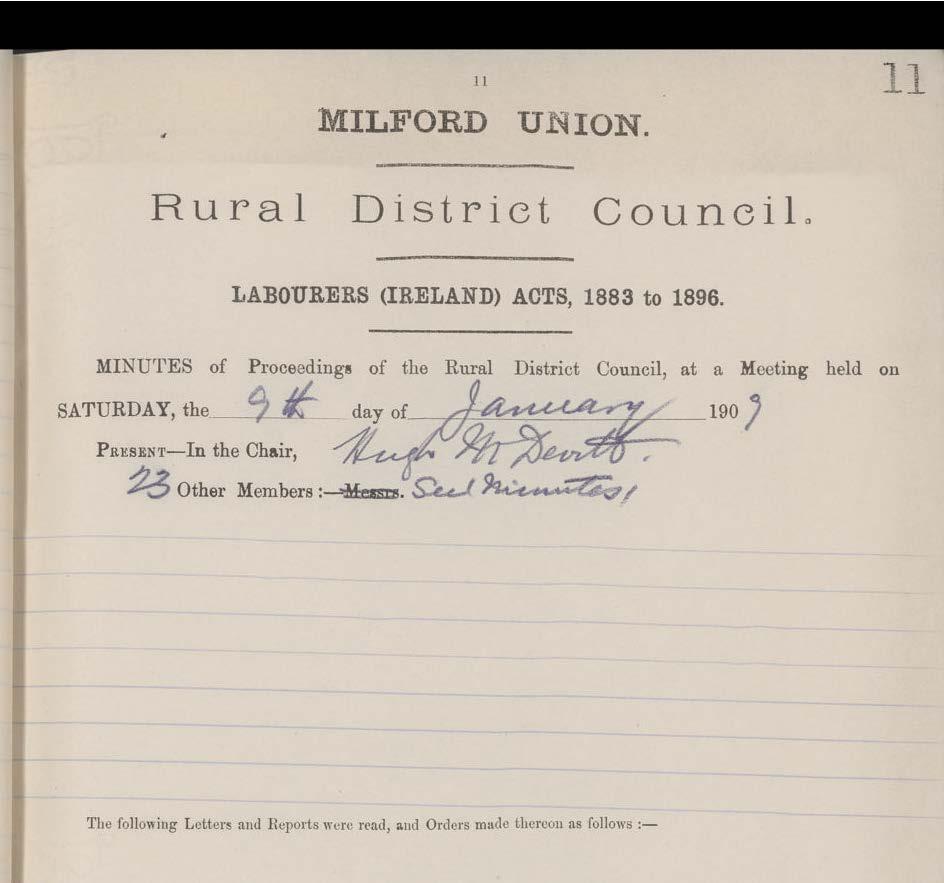 11
11
MILFORD UNION.
Rural District Council.
LABOURERS (IRELAND) ACTS, 1883 to 1896.
MINUTES of Proceedings of the Rural District Council, at a Meeting held on
SATURDAY, the 9th day of January 1909
PRESENT—In the Chair, Hugh McDevitt.
23 Other Members:—Messrs. See Minutes,
The following Letters and Reports were read, and Orders made thereon as follows :—